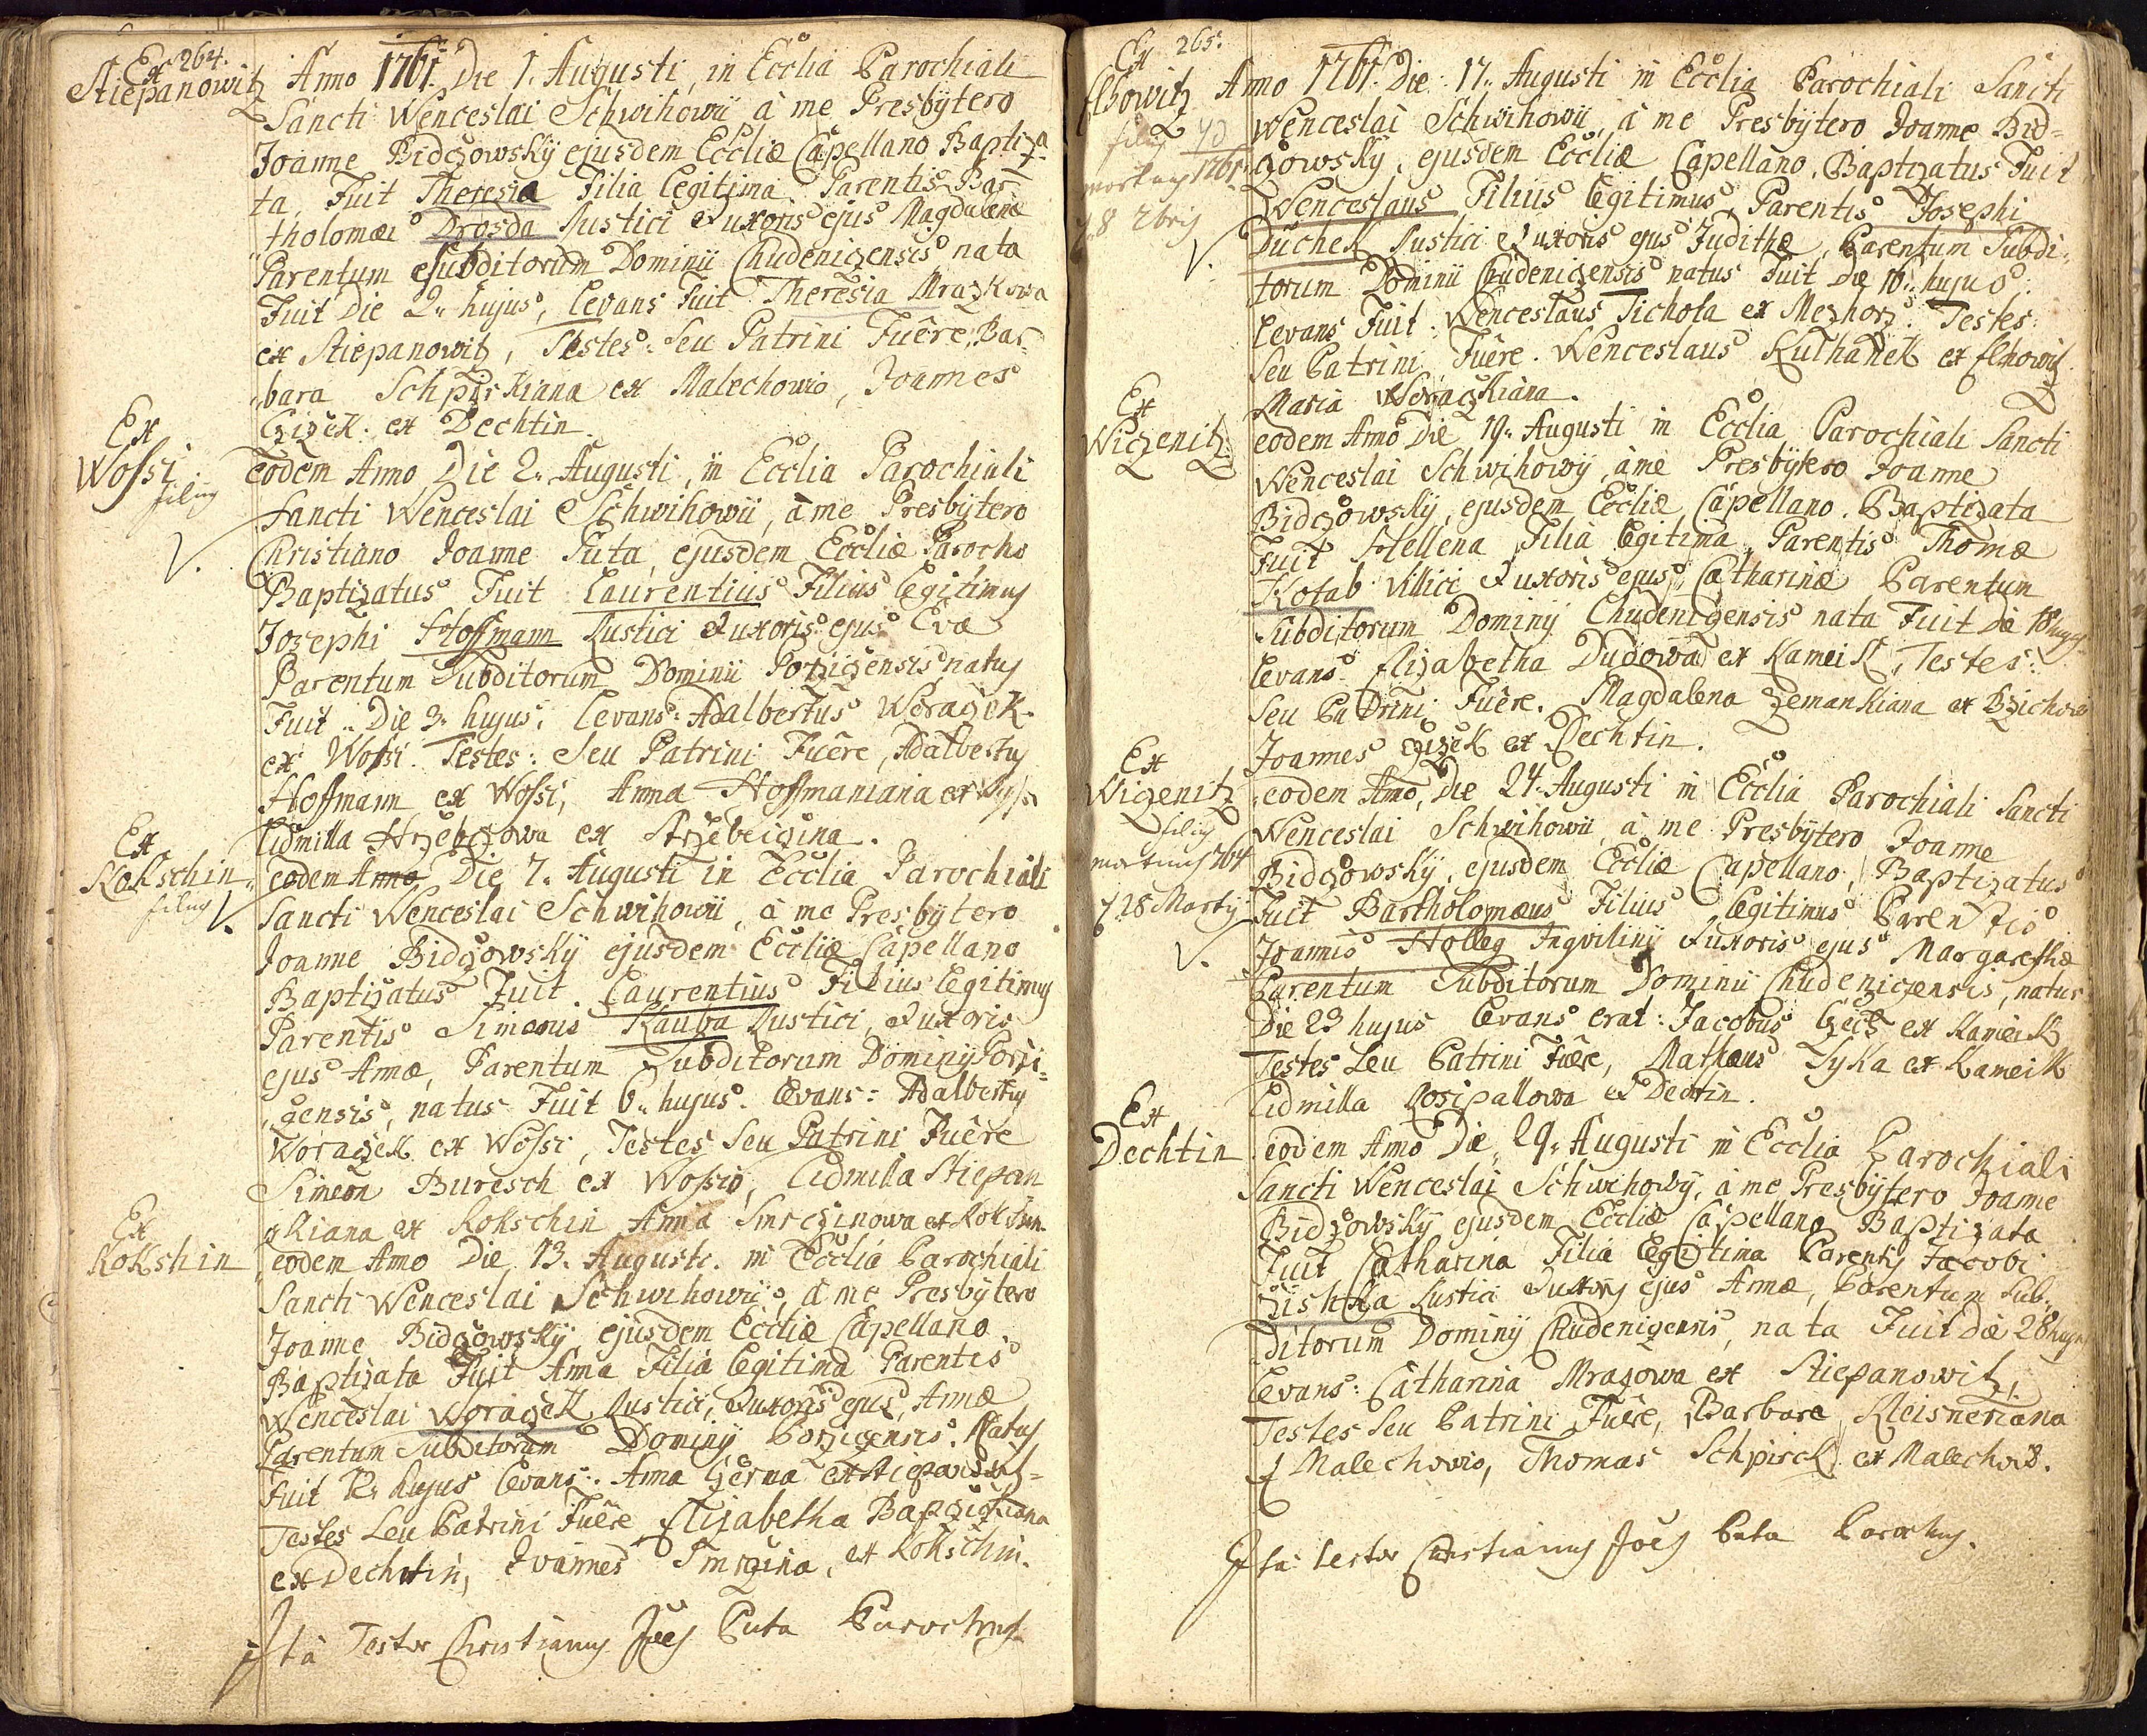 264.
Ex
Stiepanowitz
Anno 1761. Die 1. Augusti, in Ecclia Parochiali
Sancti Wenceslai Schwihowii à me Presbytero
Joanne Bidczowsky ejusdem Eccliæ Capellano Baptiza-
ta Fuit Theresia Filia Legitima Parentis Bar-
tholomæi Drosda Rustici & uxoris ejus Magdalenæ
Parentum Subditorum Dominii Chudeniczensis nata
Fuit Die 2. hujus, Levans Fuit Theresia Mrazkowa
ex Stiepanowitz, Testes: Seu Patrini Fuêre, Bar-
bara Schpirkiana ex Malechowio, Joannes
Czizek ex Dechtin.
Ex
Wossi
filius
V.
eodem Anno Die 2. Augusti, in Ecclia Parochiali
Sancti Wenceslai Schwihowii, à me Presbytero
Christiano Joanne Puta, ejusdem Eccliæ Parocho
Baptizatus Fuit Laurentius Filius Legitimus
Jozephi Hoffmann Rustici & uxoris ejus Evæ
Parentum Subditorum Dominii Porziczensis natus
Fuit Die 3. hujus, Levans: Adalbertus Woraczek
ex Wossi. Testes: Seu Patrini Fuêre, Adalbertus
Hoffmann ex Wossi, Anna Hoffmaniana ex
Lidmilla Hrzebczowa ex
Ex
Rokschin
filius V.
eodem Anno Die 7. Augusti in Ecclia Parochiali
Sancti Wenceslai Schwihowii, à me Presbytero
Joanne Bidczowsky ejusdem Eccliæ Capellano
Baptizatus Fuit Laurentius Filius Legitimus
Parentis Simonis Kauba Rustici, & uxoris
ejus Annæ, Parentum Subditorum Dominii Porzi-
czensis, natus Fuit 6. hujus. Levans: Adalbertus
Woraczek ex Wossi, Testes Seu Patrini Fuêre
Simeon Buresch ex Wossio, Lidmilla Stiepan
kiana ex Rokschin Anna Smrczinowa ex Rokschin.
Ex
Rokshin
eodem Anno Die 13. Augusti. in Ecclia Parochiali
Sancti Wenceslai Schwihowii, à me Presbytero
Joanne Bidczowsky ejusdem Eccliæ Capellano
Baptizata Fuit Anna Filia Legitima Parentis
Wenceslai Woraczek Rustici, & uxoris ejus Annæ
Parentum Subditorum Dominii Porziczensis. Natus
Fuit 12. hujus Levans: Anna Czerna ex
Testes Seu Patrini Fuêre Elizabetha
ex Dechtin, Joannes Smrczina, ex Rokschin.
Ita Testor Christianus Joes Puta Parochus
265.
Ex
Elhowitz
filius
mortuus 1761
8 2bris
V.
Anno 1761. Die 17. Augusti in Ecclia Parochiali Sancti
Wenceslai Schwihowii, à me Presbytero Joanne Bid-
czowsky, ejusdem Eccliæ Capellano, Baptizatus Fuit
Wenceslaus Filius Legitimus, Parentis Josephi
Duchek Rustici & uxoris ejus Judithæ, Parentum Subdi-
torum Dominii Chudeniczensis natus Fuit Die 16. hujus.
Levans Fuit: Wenceslaus Tichota ex Mezhorz. Testes:
Seu Patrini Fuêre. Wenceslaus Kulhanek ex Elhowitz
Maria Woraczkiana.
Ex
Wiczenitz
eodem Anno Die 19. Augusti in Ecclia Parochiali Sancti
Wenceslai Schwihowii, à me Presbytero Joanne
Bidczowsky, ejusdem Eccliæ Capellano. Baptizata
Fuit Hellena Filia Legitima, Parentis Thomæ
Kotab Villici & uxoris ejus Catharinæ Parentum
Subditorum Dominii Chudeniczensis nata Fuit Die 18 hujus
Levans Elizabetha Dudowa ex Kameik, Testes:
Seu Patrini Fuêre. Magdalena Zemankiana ex
Joannes Czizek ex Dechtin.
Ex
Wiczenitz
filius
mortuus 764
28 Martij
V.
eodem Anno, Die 24. Augusti in Ecclia Parochiali Sancti
Wenceslai Schwihowii, à me Presbytero Joanne
Bidczowsky, ejusdem Eccliæ Capellano, Baptizatus
Fuit Bartholomæus Filius Legitimus Parentis
Joannis Holleg Inquilini & uxoris ejus Margarethæ
Parentum Subditorum Dominii Chudeniczensis, natus
Die 23 hujus Levans erat: Jacobus Czech ex Kameik
Testes Seu Patrini Fuêre, Mathæus Lyka ex Kameik
Lidmilla Rosipallowa ex Dechtin.
Ex
Dechtin
eodem Anno Die 29. Augusti in Ecclia Parochiali
Sancti Wenceslai Schwihowii, à me Presbytero Joanne
Bidczowsky ejusdem Eccliæ Capellano Baptizata
Fuit Catharina Filia Legitima Parentis Jacobi
Zishka Rustici & uxoris ejus Annæ, Parentum Sub-
ditorum Dominii Chudeniczensis, nata Fuit Die 28 hujus
Levans: Catharina Mrazowa ex Stiepanowitz,
Testes Seu Patrini Fuêre, Barbara Kleisneriana
ex Malechowio, Thomas Schpirck ex Malechow.
Ita testor Christianus Joes Puta Parochus.